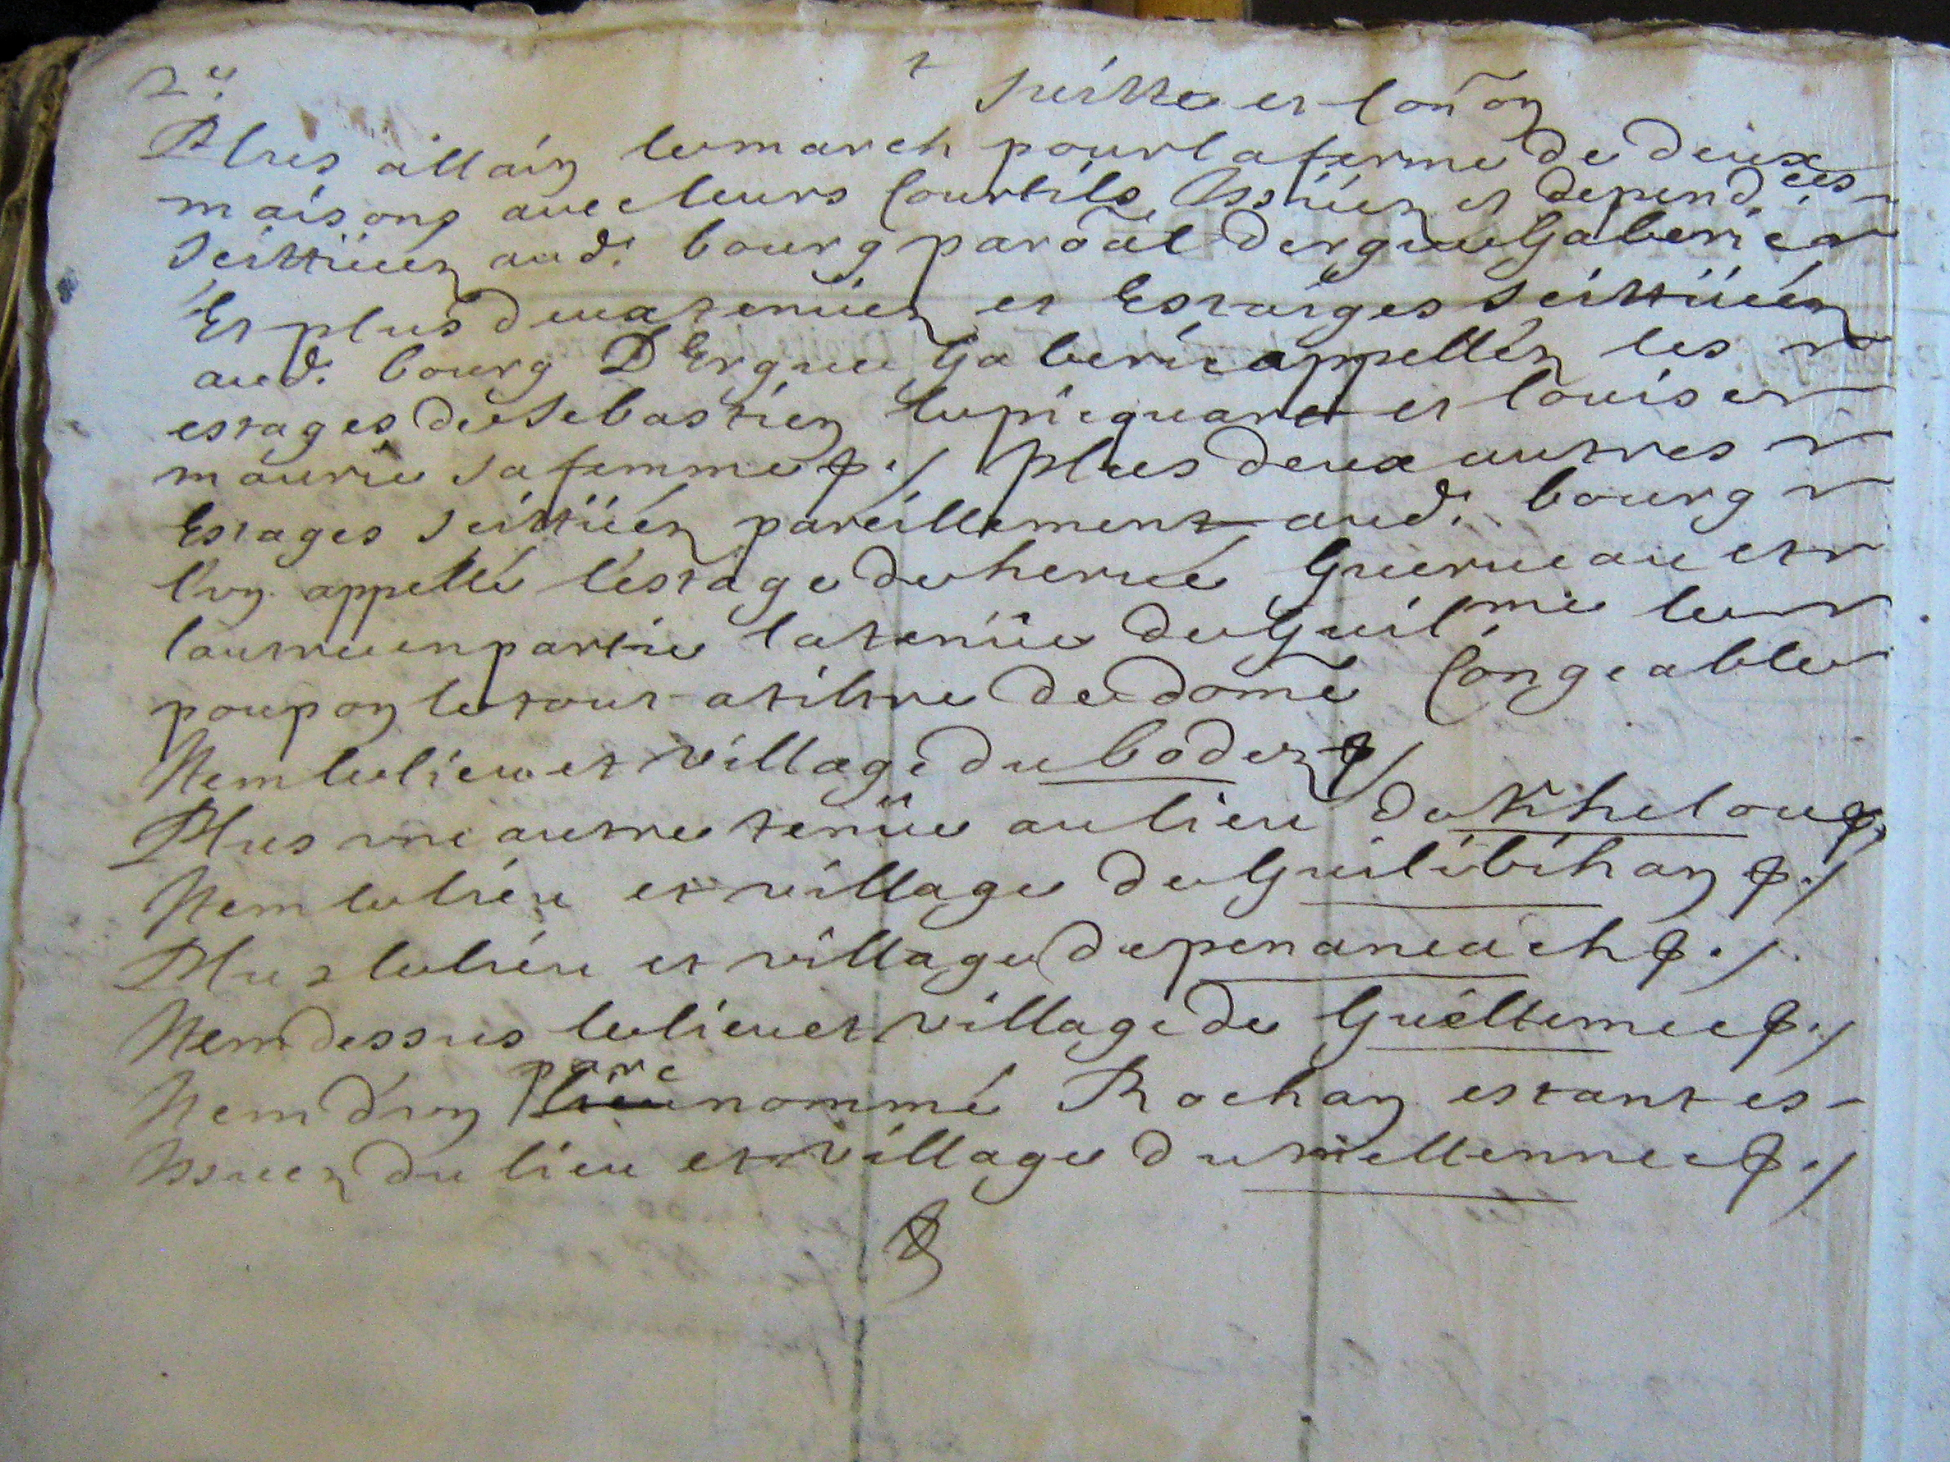 2.e
Suitte et Con̄on
Plus allain lemarch pour la ferme de deux
maisons avec leurs Courtils Issües et depend.ces
seittüées aud.t bourg paroāl dergue Gaberic
Et plus deux tenües et Estaiges seittüées
aud.t bourg D'Ergue Gaberic appellés les
estages de Sebastien lupicquare et louise
maurie sa femme ./ Plus deux autres
Estages seittüés pareillement aud.t bourg
l'vn appellé l'estage de herue Guerneau et
lautre en partie la tenüe de Guil.me le
poupon le tout a tiltre de dome Congeable
Item le lieu et village du boden /
Plus vne autre tenüe au lieu de K/helou
Item le lieu et village de Guilibihan ./
Plus le lieu et village de penaneach ./
Item dessus le lieu et village de Guéltemee ./
Item d'vn lieu parc nommé Rochan estant es
Issues du lieu et village du mellennec ./